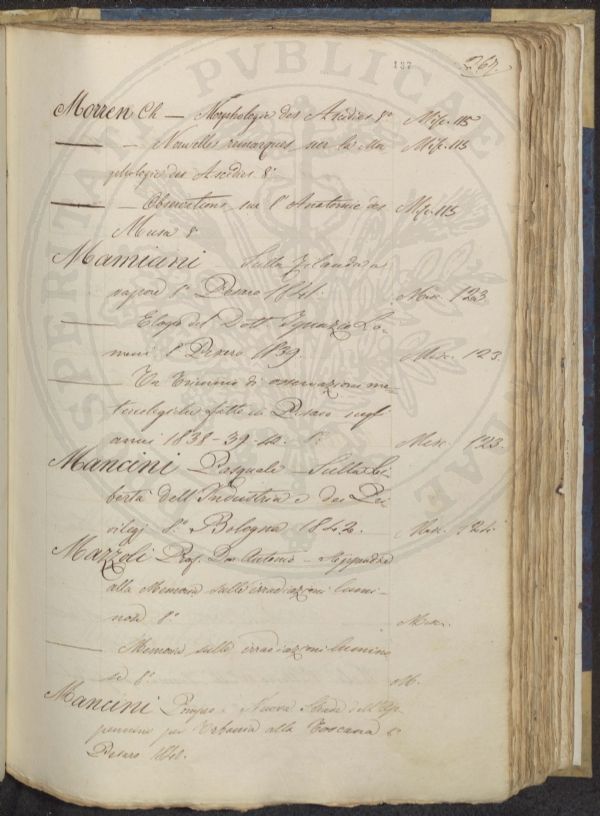 PVBLICAE
PROSPERITATI
137 267.
Morren Ch — Morphologie des Ascidies 8° Misc. 115
— Nouvelles remarques sur la Mor Misc. 115
phologie des Ascidies 8°
— Observations sur l'Anatomie des Misc. 115
Musa 8°
Mamiani Sulla filanda a
vapore 8° Pesaro 1841. Misc. 123
— Elogio del Dott. Ignazio Lo-
meni 8° Pesaro 1839. Misc. 123.
— Un Triennio di osservazioni me-
fatte in Pesaro negli
anni 1838-39-40. 8° Misc. 123
Mancini Pasquale — Sulla Li-
bertà dell'Industria e dei Pri
vilegi 8° Bologna 1842. Misc. 124.
Mazzoli Prof. Don Antonio — Appendice
alla Memoria sulle irradiazioni lumi-
nose 8° Misc.
— Memoria sulle irradiazioni lumino
se 8°
Mancini Pompeo — Nuova Strada dell'Ap
pennino per Urbania alla Toscana 8°
Pesaro